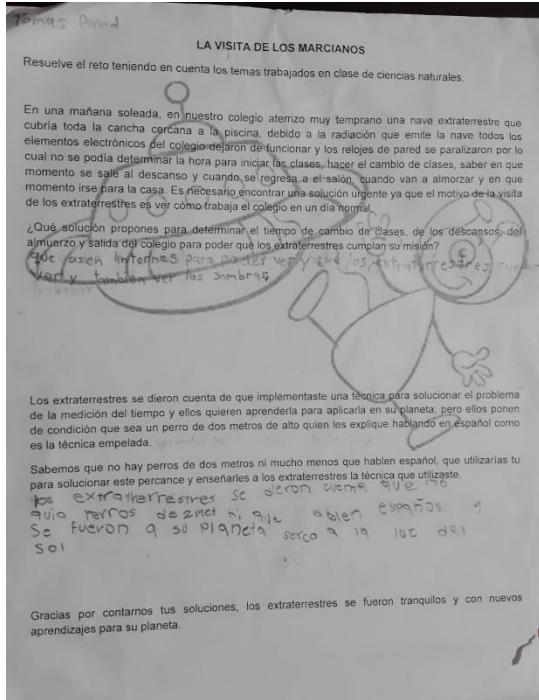 Tomas David
LA VISITA DE LOS MARCIANOS
Resuelve el reto teniendo en cuenta los temas trabajados en clase de ciencias naturales.
En una mañana soleada, en nuestro colegio aterrizo muy temprano una nave extraterrestre que
cubría toda la cancha cercana a la piscina, debido a la radiación que emite la nave todos los
elementos electrónicos del colegio dejaron de funcionar y los relojes de pared se paralizaron por lo
cual no se podía determinar la hora para iniciar las clases, hacer el cambio de clases, saber en que
momento se sale al descanso y cuando se regresa a el salón, cuando van a almorzar y en que
momento irse para la casa. Es necesario encontrar una solución urgente ya que el motivo de la visita
de los extraterrestres es ver cómo trabaja el colegio en un día normal.
¿Qué solución propones para determinar el tiempo de cambio de clases, de los descansos, del
almuerzo y salida del colegio para poder que los extraterrestres cumplan su misión?
que usen linternas para poder ver y que los extraterrestres puedan
ver y tambien ver las sombras
Los extraterrestres se dieron cuenta de que implementaste una técnica para solucionar el problema
de la medición del tiempo y ellos quieren aprenderla para aplicarla en su planeta, pero ellos ponen
de condición que sea un perro de dos metros de alto quien les explique hablando en español como
es la técnica empelada.
Sabemos que no hay perros de dos metros ni mucho menos que hablen español, que utilizarías tu
para solucionar este percance y enseñarles a los extraterrestres la técnica que utilizaste.
los extratherrestres se deron cuema que no
avia perros de 2 met ni que ablen españos y
Se fueron a so planeta serca a la loc del
sol
Gracias por contarnos tus soluciones, los extraterrestres se fueron tranquilos y con nuevos
aprendizajes para su planeta.